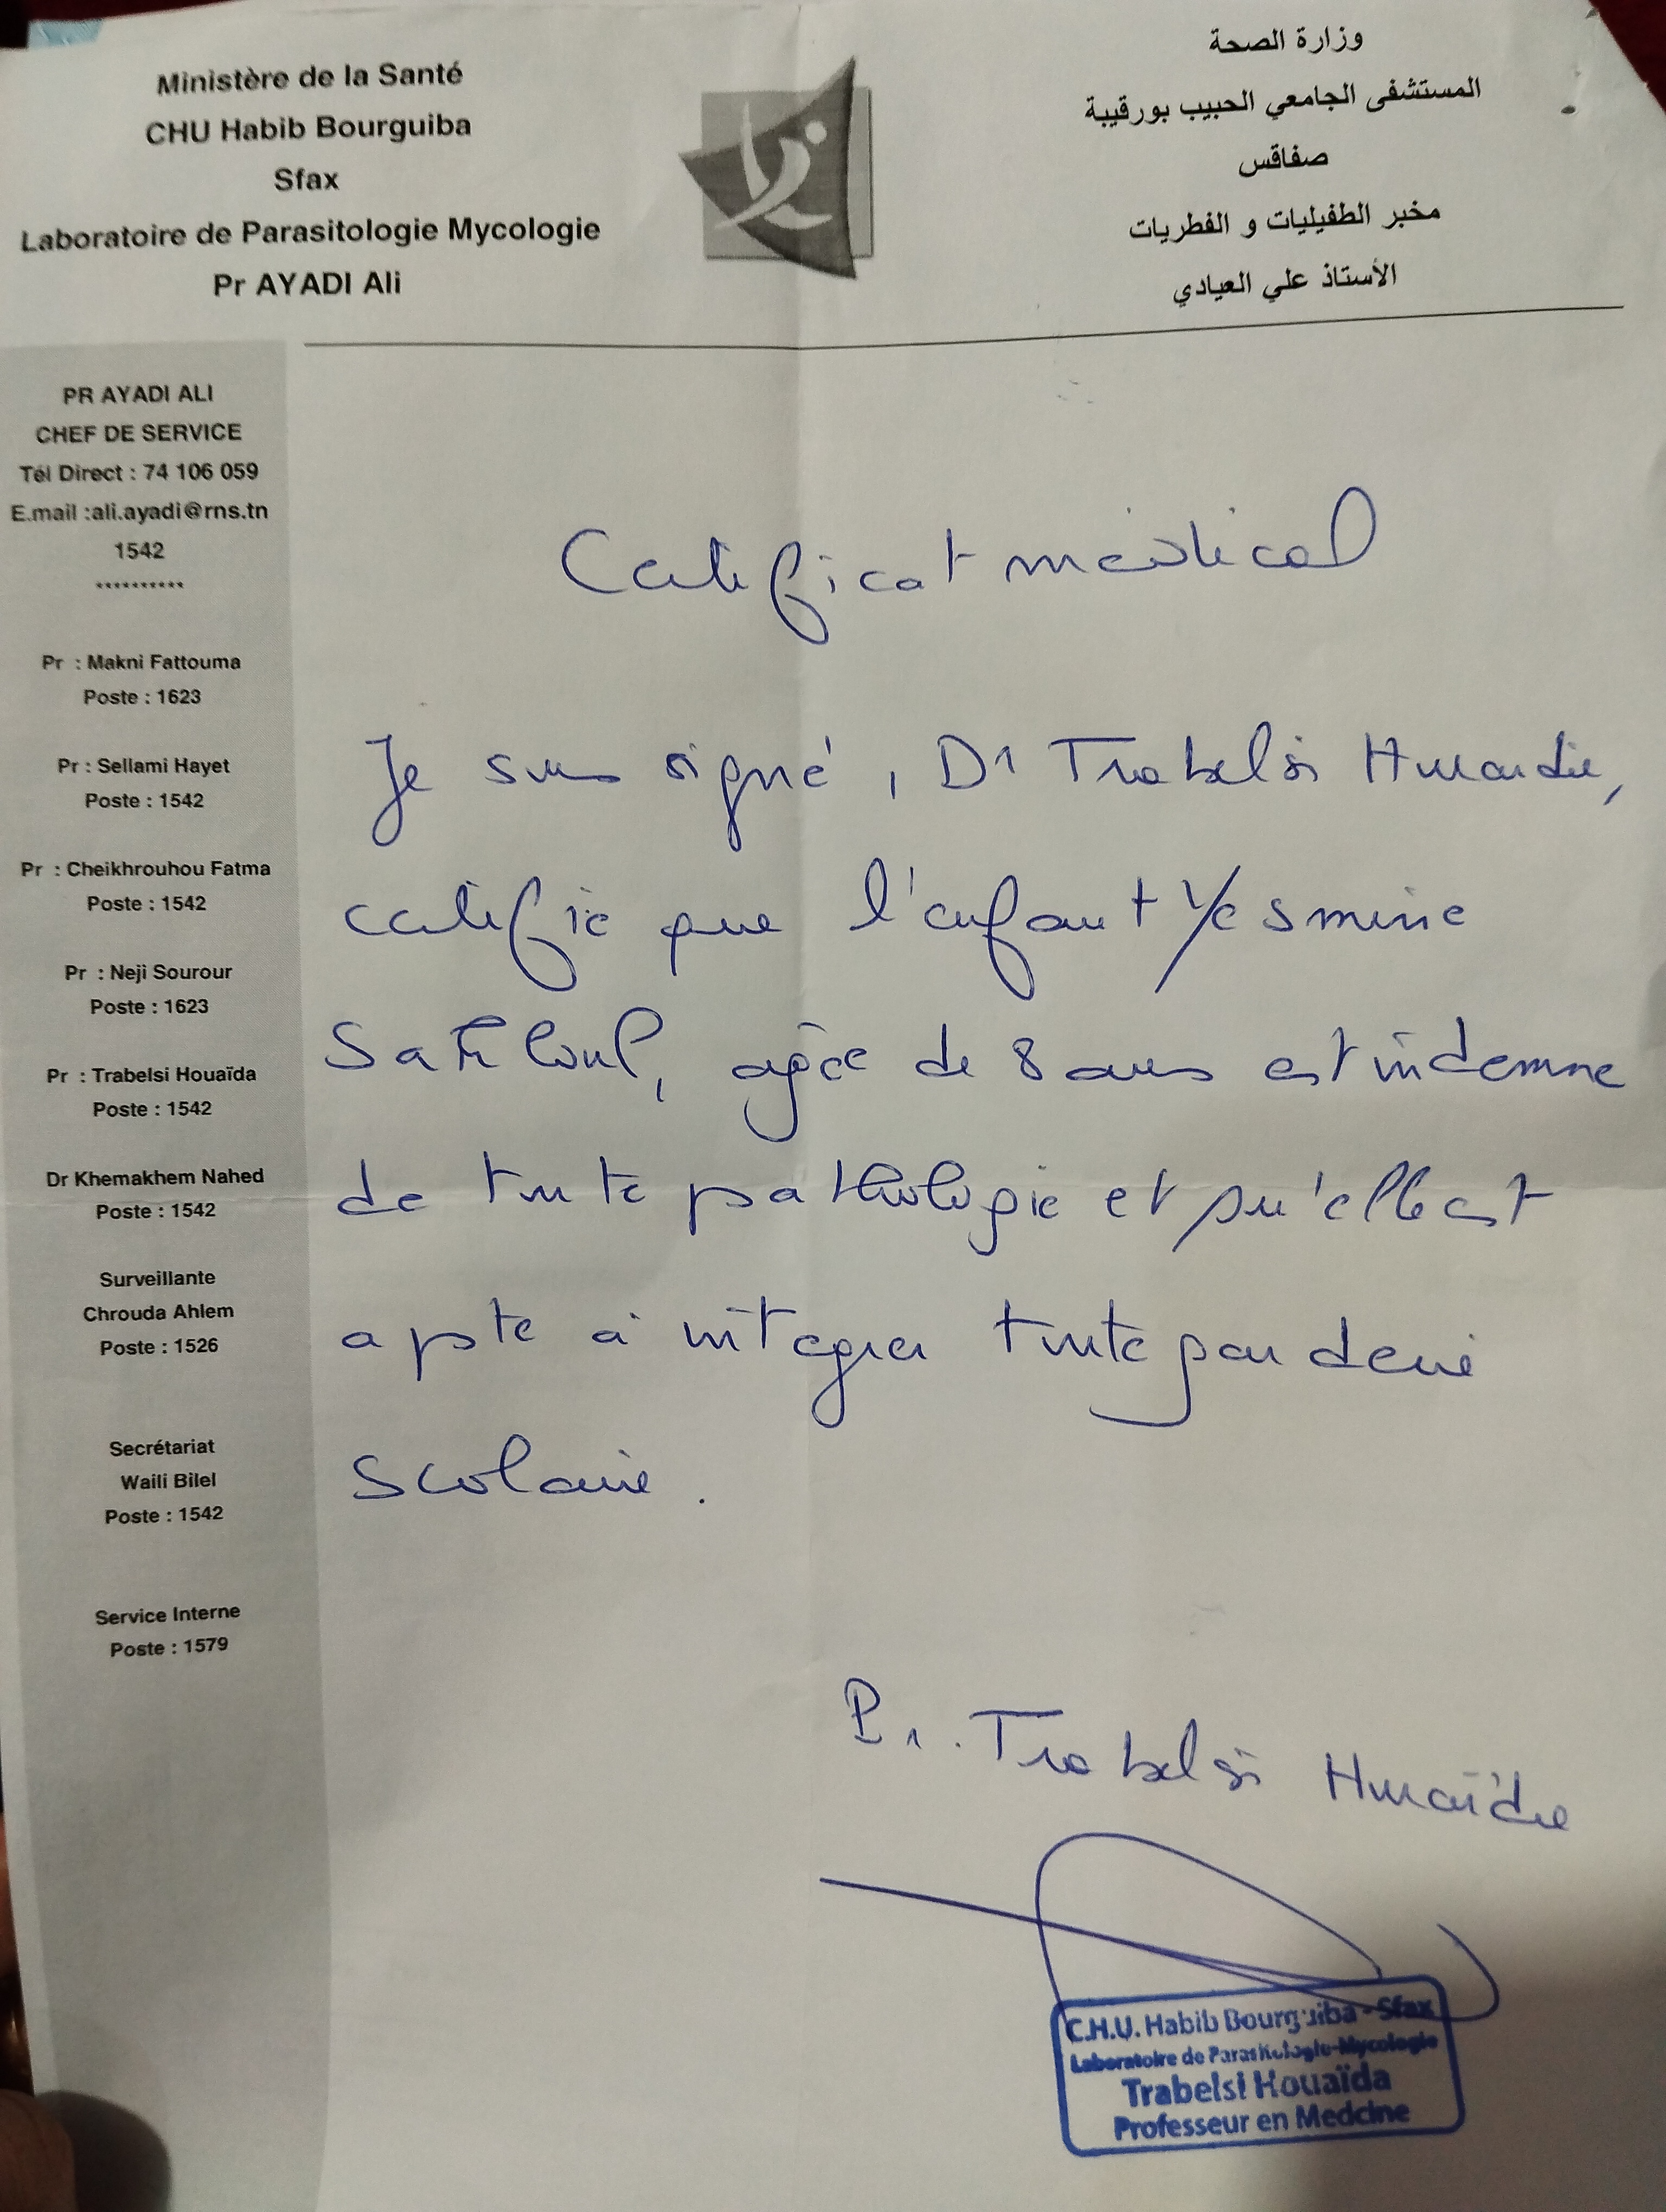 Ministère de la Santé
CHU Habib Bourguiba
Sfax
Laboratoire de Parasitologie Mycologie
Pr AYADI Ali
وزارة الصحة
المستشفى الجامعي الحبيب بورقيبة
صفاقس
مخبر الطفيليات و الفطريات
الأستاذ علي العيادي
PR AYADI ALI
CHEF DE SERVICE
Tél Direct : 74 106 059
E.mail :ali.ayadi@rns.tn
1542
**********
Pr : Makni Fattouma
Poste : 1623
Pr : Sellami Hayet
Poste : 1542
Pr : Cheikhrouhou Fatma
Poste : 1542
Pr : Neji Sourour
Poste : 1623
Pr : Trabelsi Houaïda
Poste : 1542
Dr Khemakhem Nahed
Poste : 1542
Surveillante
Chrouda Ahlem
Poste : 1526
Secrétariat
Waili Bilel
Poste : 1542
Service Interne
Poste : 1579
Certificat médical
Je sous signé, Dr Trabelsi Houaida,
certifie que l'enfant Yesmine
, agée de 8 ans est indemne
de toute pathologie et qu'elle est
apte à intégrer toute garderie
scolaire.
Pr. Trabelsi Houaïda
C.H.U. Habib Bourguiba - Sfax
Laboratoire de Parasitologie-Mycologie
Trabelsi Houaïda
Professeur en Medcine